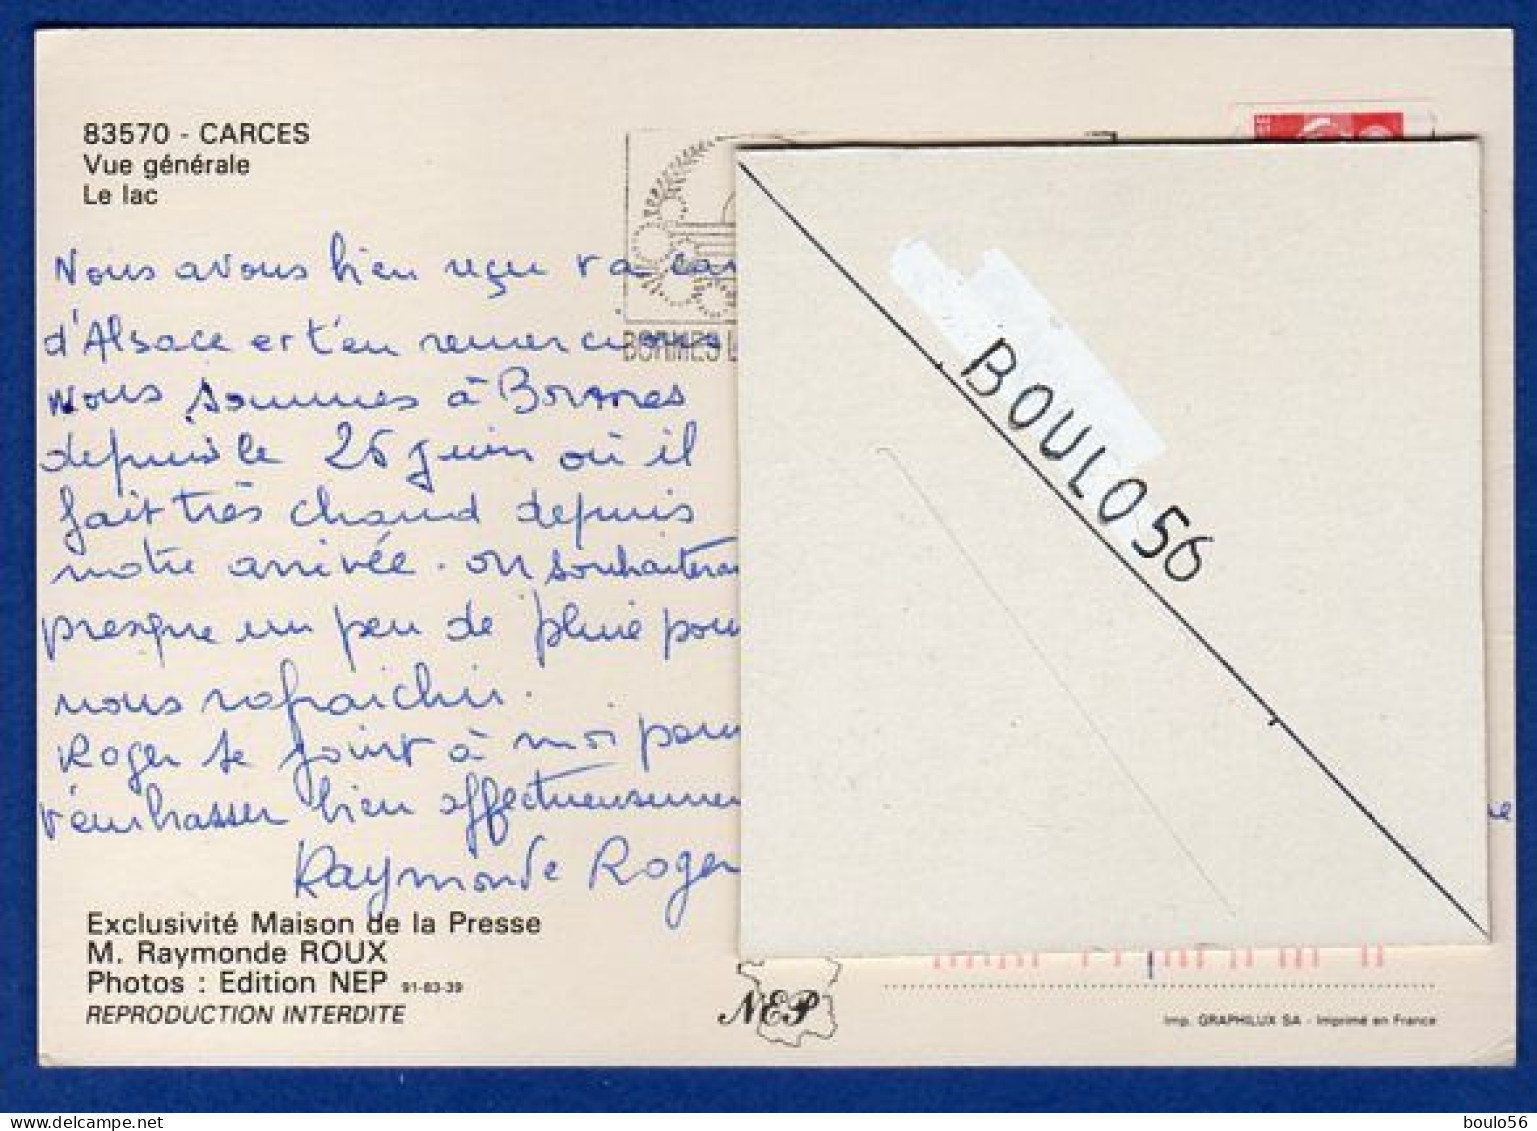 83570 - CARCES
Vue générale
Le lac
Nous avons bien reçu ta car
d'Alsace et t'en remercions
Nous sommes à Bormes
depuis le 26 juin où il
fait très chaud depuis
notre arrivée. on souhaiterai
presque un peu de pluie pour
nous rafraichir.
Roger se joint à moi pour
t'embrasser bien affectueusemen
Raymonde Roger
BORMES L
BOULO56
Exclusivité Maison de la Presse
M. Raymonde ROUX
Photos : Edition NEP 91-83-39
REPRODUCTION INTERDITE
NEP
Imp. GRAPHILUX SA - Imprimé en France
boulo56